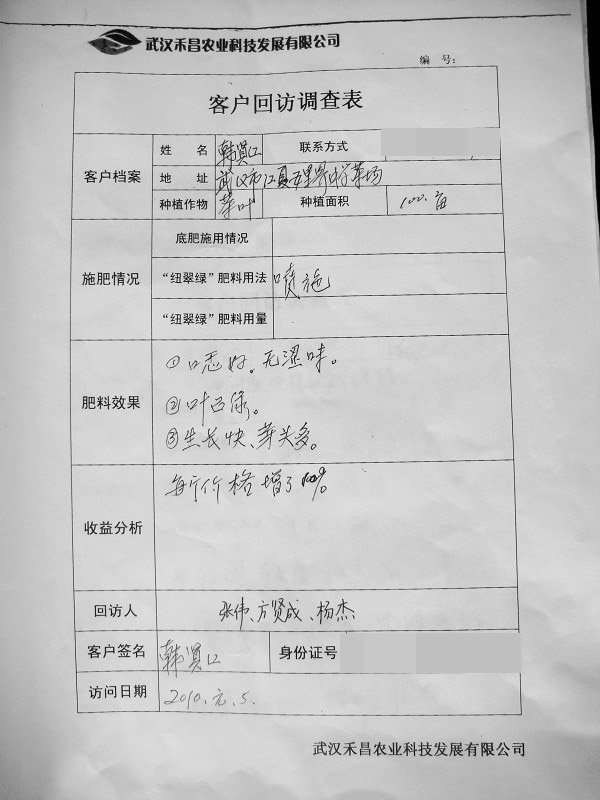 武汉禾昌农业科技发展有限公司
编 号:
客户回访调查表
客户档案
姓 名 韩 江 联系方式
地 址 武汉市江夏 茶场
种植作物 茶叶 种植面积 100.亩
施肥情况
底肥施用情况
“纽翠绿”肥料用法 喷施
“纽翠绿”肥料用量
肥料效果
①口感好。无涩味。
②叶色绿。
③生长快、芽头多。
收益分析
每斤价格增了100%
回访人 张伟、方贤成、杨杰
客户签名 韩 江 身份证号
访问日期 2010.元.5.
武汉禾昌农业科技发展有限公司